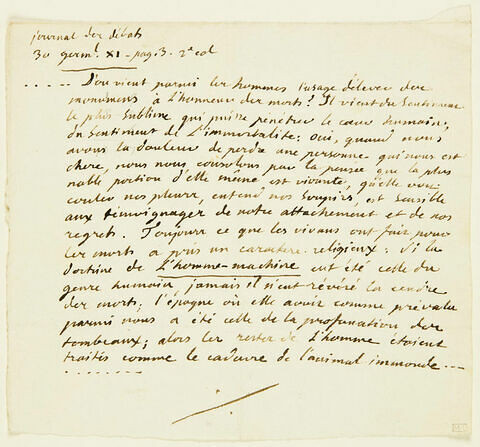 journal des débats
30 germ.l XI - pag. 3. 2e col
..... D'ou vient parmi les hommes l'usage d'élever des
monumens à l'honneur des morts? Il vient du sentiment
le plus sublime qui puisse pénétrer le cœur humain;
du sentiment de l'immortalité: oui, quand nous
avons la douleur de perdre une personne qui nous est
chere, nous nous consolons par la pensée que la plus
noble portion d'elle même est vivante, qu'elle voit
couler nos pleurs, entend nos soupirs, est sensible
aux témoignages de notre attachement et de nos
regrets. Toujours ce que les vivans ont fait pour
les morts a pris un caractere religieux: si la
doctrine de L'homme-machine eut été celle du
genre humain jamais il n'eut révéré la cendre
des morts; l'époque où elle avoit comme prévalu
parmi nous a été celle de la profanation des
tombeaux; alors les restes de l'homme étoient
traités comme le cadavre de l'animal immonde ---
........